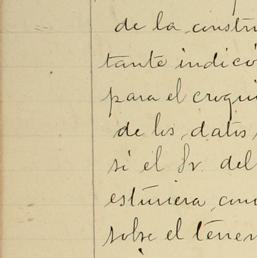 de la constru
tante indicó
para el croqui
de los datos
si el Sr. del
estuviera con
sobre el terren